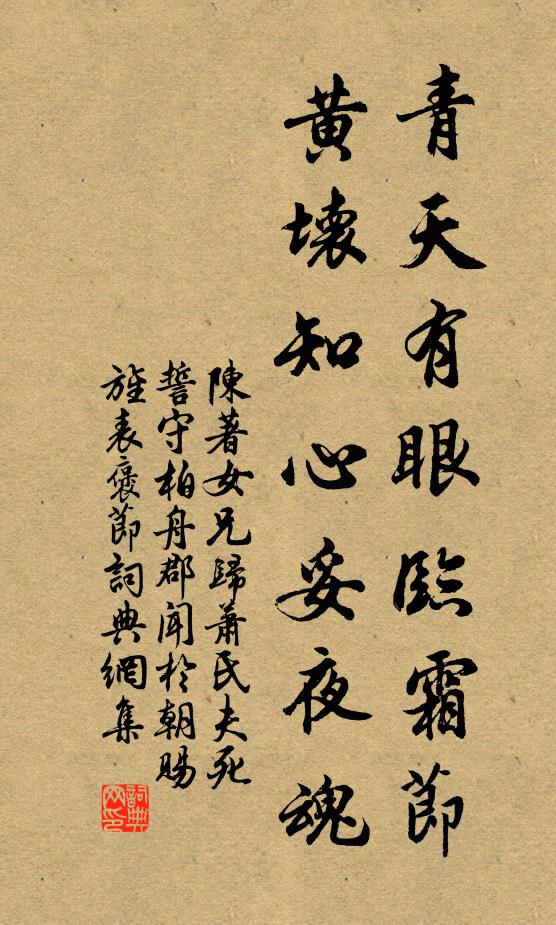 青天有眼臨霜節
黃壞知心妥夜魂
陳著女兄歸蕭氏夫死
誓守柏舟郡聞於朝賜
旌表褒節詞典網集
詞典
网印